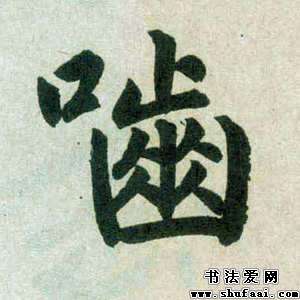 嚙
书法爱网
www.shufaai.com